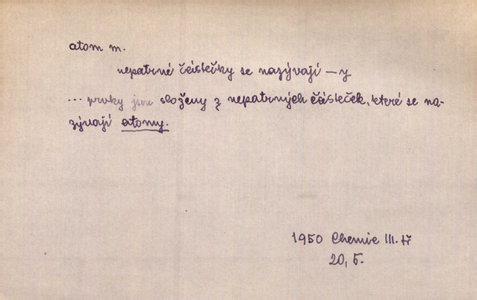 atom m.
nepatrné částečky se nazývají —y
... prvky jsou složeny z nepatrných částeček, které se na-
zývají atomy.
1950 Chemie III. tř
20, 5.